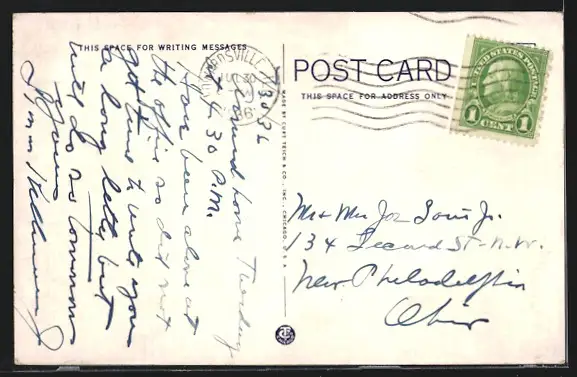 THIS SPACE FOR WRITING MESSAGES
POST CARD
THIS SPACE FOR ADDRESS ONLY
UNITED STATES POSTAGE
1 CENT 1
JUL 30
MADE BY CURT TEICH & CO., INC., CHICAGO, U.S.A.
7/30/36
Arrived home Tuesday
4.30 P.M.
Have been alone at
the office so did not
get time to write you
a long letter but
will do so tomorrow
Yours
Mr & Mrs Joe Jr.
134 Second St-N.W.
New Philadelphia
Ohio